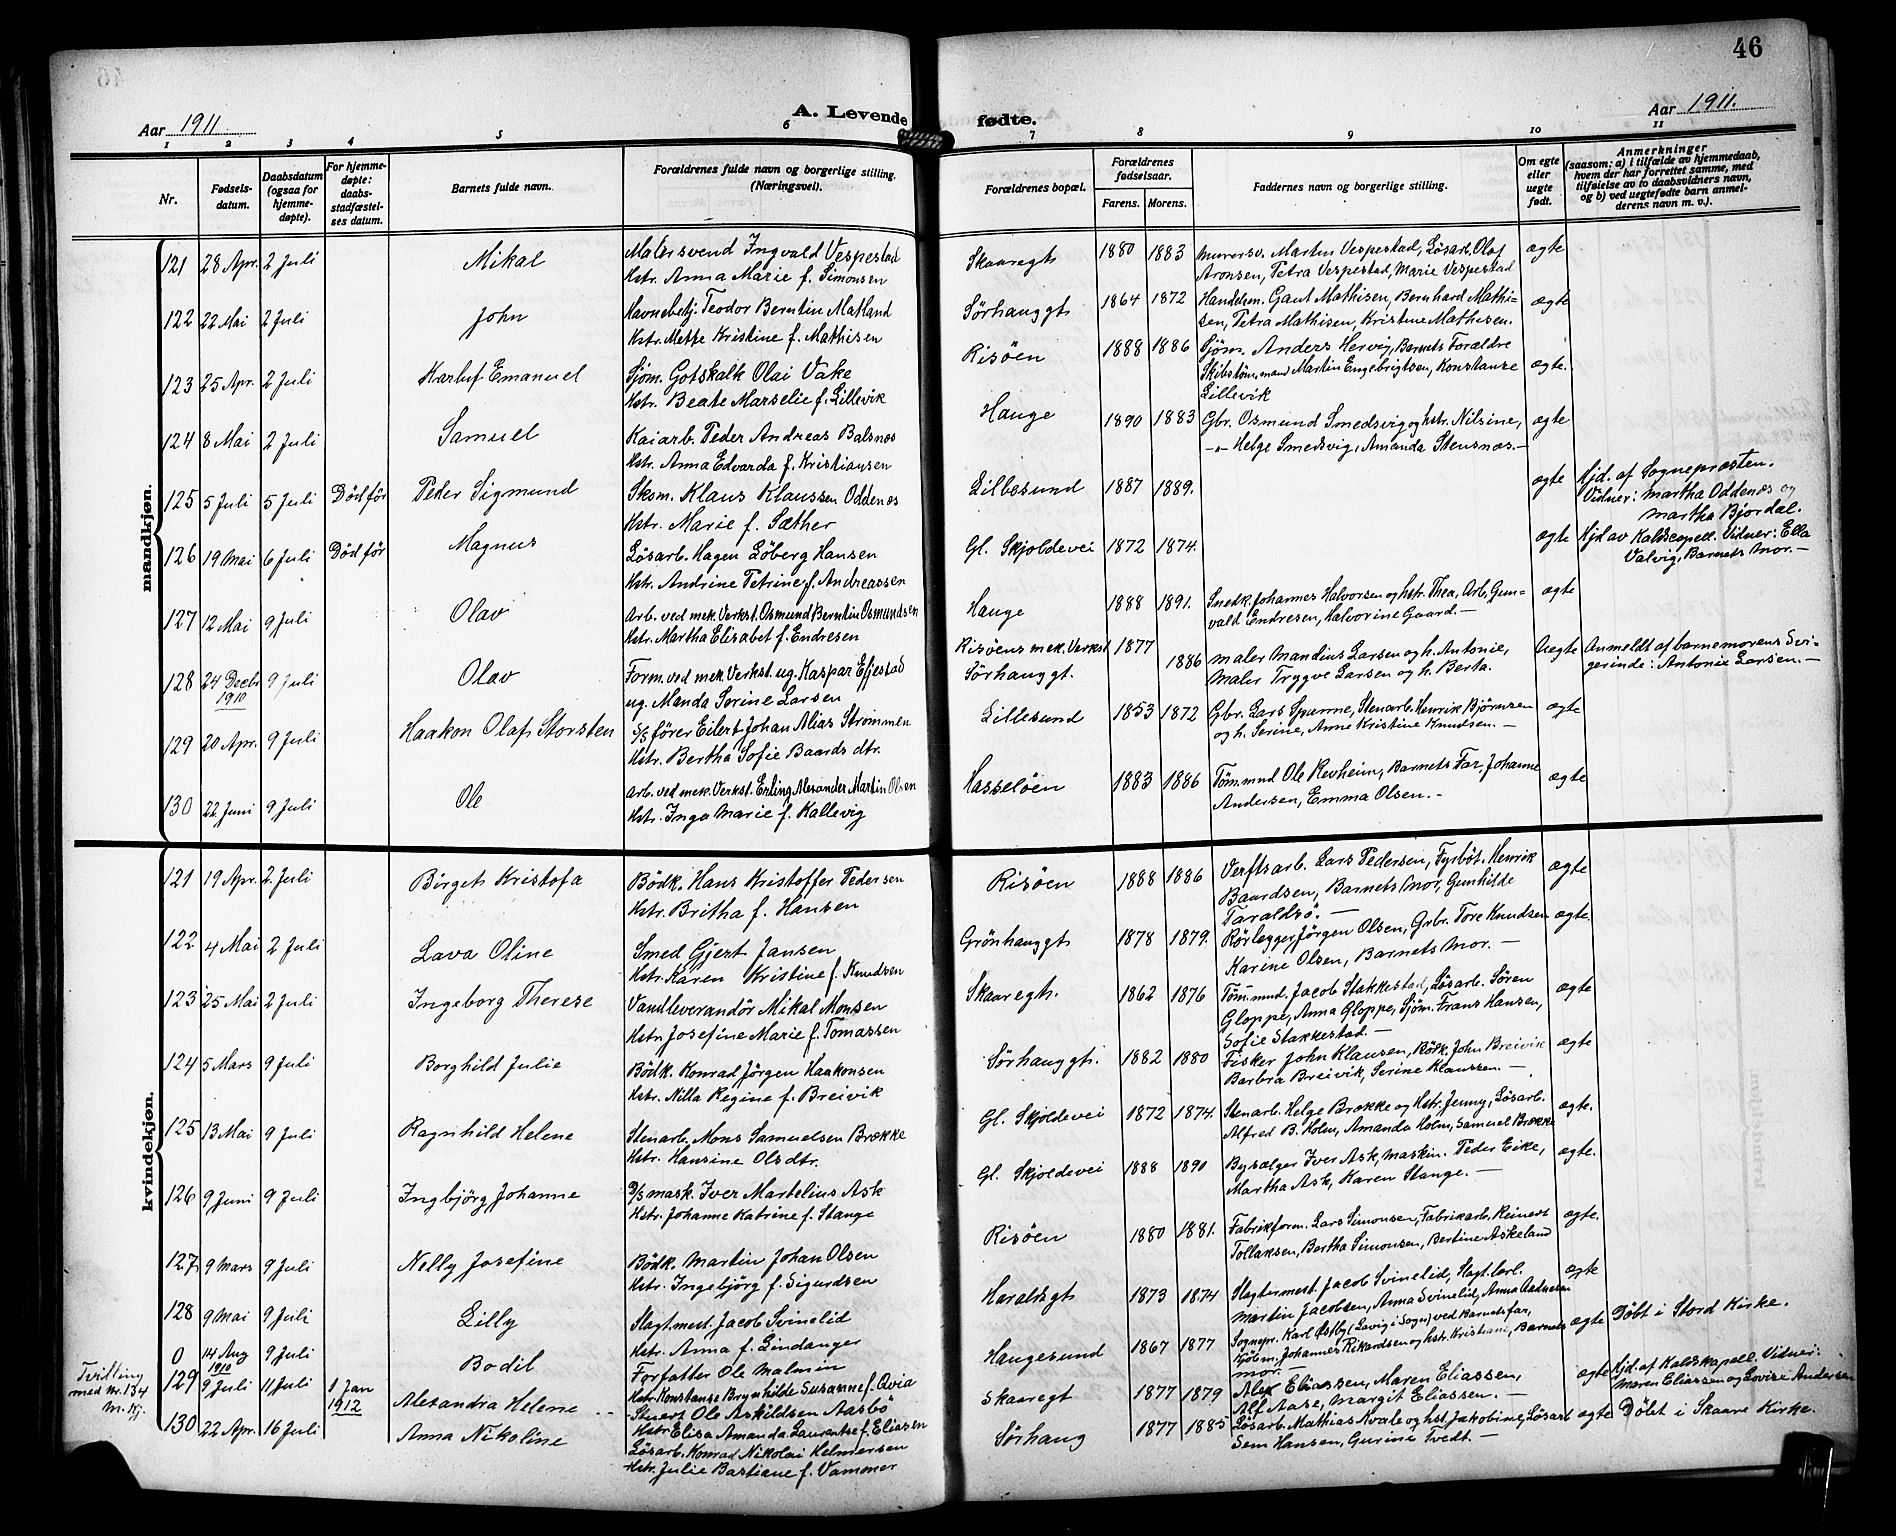 46
Aar 1911
A. Levende
fødte.
Aar 1911.
1 2 3 4 5 6 7 8 9 10 11
Nr.
Fødsels-
datum.
Daabsdatum
(ogsaa for
hjemme-
døpte).
For hjemme-
døpte:
daabs-
stadfæstel-
ses datum.
Barnets fulde navn.
Forældrenes fulde navn og borgerlige stilling.
(Næringsvei).
Forældrenes bopæl.
Forældrenes
fødselsaar.
Farens. Morens.
Faddernes navn og borgerlige stilling.
Om egte
eller
uegte
født.
Anmerkninger
(saasom: a) i tilfælde av hjemmedaab,
hvem der har forrettet samme, med
tilføielse av to daabsvidners navn,
og b) ved uegtefødte barn anmel-
derens navn m. v.).
mandkjøn.
121 28 Apr. 2 Juli Mikal Malersvend Ingvald Vespestad Skaaregt 1880 1883 Murersv. Martin Vespestad, Løsarb. Olaf ægte
Hstr. Anna Marie f. Simonsen Aronsen, Petra Vespestad, Marie Vespestad
122 22 Mai 2 Juli John Havnebetj. Teodor Berntin Matland Sørhauggt 1864 1872 Handelsm. Gaut Mathisen, Bernhard Mathi- ægte
Hstr. Mette Kristine f. Mathisen sen, Petra Mathisen, Kristine Mathisen.
123 25 Apr. 2 Juli Karluf Emanuel Sjøm. Gotskalk Olai Vake Risøen 1888 1886 Sjøm. Anders Hervig, Barnets Forældre ægte.
Hstr. Beate Marselie f. Lillevik Skibstøm.mand Martin Engebrigtsen, Konstanse
Lillevik
124 8 Mai 2 Juli Samuel Kaiarb. Peder Andreas Balsnes Hauge 1890 1883 Gbr. Osmund Smedsvig og hstr. Nilsine, ægte
Hstr. Anna Edvarda f. Kristiansen -"- Helge Smedsvig, Amanda Stensnæs.-
125 5 Juli 5 Juli Død før Peder Sigmund Sksm. Klaus Klaussen Oddenes Lillesund 1887 1889. ægte Hjd. af Sognepresten.
Hstr. Marie f. Sæther Vidner: Martha Oddenes og
Martha Bjordal.
126 19 Mai 6 Juli Død før Magnus Løsarb. Hagen Løberg Hansen Gl. Skjoldevei 1872 1874. ægte Hjd av Kaldscapell. Vidner: Ella
Hstr. Andrine Petrine f. Andreassen Valvig, Barnets Mor.-
127 12 Mai 9 Juli Olav Arb. ved mek. Verkst. Osmund Berntin Osmundsen Hauge 1888 1891. Snedk. Johannes Halvorsen og hstr. Thea, Arb. Gun- ægte
Hstr. Martha Elisabet f. Endresen vald Endresen, Halvorine Gaard.-
128 24 Decbr 1910 9 Juli Olav Form. ved mek. Verkst. ug. Kaspar Efjestad Risøens mek. Verkst 1877 Maler Mandius Larsen og h. Antonie, Uegte Anmeldt af barnemorens Svi-
ug. Manda Serine Larsen Sørhauggt. 1886 Maler Trygve Larsen og h. Berta. gerinde: Antonie Larsen.-
129 20 Apr. 9 Juli Haakon Olaf Storsten S/S fører Eilert Johan Alias Strømmen Lillesund 1853 1872 Gbr. Lars Spanne, Stenarb. Henrik Bjørnsen ægte
Hstr. Bertha Sofie Baardsdtr. og h. Serine, Anne Kristine Knudsen.-
130 22. Juni 9 Juli Ole Arb. ved mek. Verkst. Erling Alexander Martin Olsen Hasseløen 1883 1886 Tømmnd Ole Revheim, Barnets Far, Johanne ægte
Hstr. Inga Marie f. Kallevig Andersen, Emma Olsen.-
kvindekjøn.
121 19 Apr. 2 Juli Birget Kristofa Bødk. Hans Kristoffer Pedersen Risøen 1888 1886 Verftsarb. Lars Pedersen, Fyrbøt. Henrik ægte
Hstr. Britha f. Hansen Baardsen, Barnets Mor, Gunhilde
Taraldsø.-
122 4 Mai 2 Juli Lava Oline Smed Gjert Jansen Grønhauggt 1878 1879. Rørlegger Jørgen Olsen, Grbr. Tore Knudsen ægte.
Hstr. Karen Kristine f. Knudsen Karine Olsen, Barnets Mor.-
123 25 Mai 2 Juli Ingeborg Therese Vandleverandør Mikal Monsen Skaaregt. 1862 1876 Tømmnd. Jacob Stakkestad, Løsarb. Søren ægte
Hstr. Josefine Marie f. Tomassen Gloppe, Anna Gloppe, Sjøm. Frans Hansen,
Sofie Stakkestad.-
124 5 Mars 9 Juli Borghild Julie Bødk. Konrad Jørgen Haakonsen Sørhauggt. 1882 1880 Fisker John Klausen, Bødk. John Breivik ægte
Hstr. Nilla Regine f. Breivik Barbra Breivik, Serine Klaussen.-
125 13 Mai 9 Juli Ragnhild Helene Stenarb. Mons Samuelsen Brække Gl. Skjoldevei 1872 1874. Stenarb. Helge Brække og Hstr. Jenny, Løsarb. ægte.
Hstr. Hansine Olsdtr. Alfred B. Holm, Amanda Holm, Samuel Brække
126 9 Juni 9 Juli Ingbjørg Johanne D/S mask. Iver Martelius Ask Gl. Skjoldevei 1888 1890 Bysælger Iver Ask, Maskin. Peder Eike, ægte.
Hstr. Johanne Katrine f. Stange Martha Ask, Karen Stange.-
127 9 Mars 9 Juli Nelly Josefine Bødk. Martin Johan Olsen Risøen 1880 1881. Fabrikform. Lars Simonsen, Fabrikarb. Reinert ægte.
Hstr. Ingebjørg f. Sigurdsen Tollaksen, Bertha Simonsen, Bertine Askeland
128 9 Mai 9 Juli Lilly Slagt.mest. Jacob Svinelid Haraldsgt 1873 1874 Slagtermest. Jacob Svinelid, Slagt. Carl. ægte
Hstr. Anna f. Lindanger Martin Jacobsen, Anna Svinelid, Anna Aadnesen
0 14 Aug 1910 9 Juli Bodil Forfatter Ole Malmin Haugesund 1867 1877 Sognepr. Karl Østby (Lavig i Sogn) ved Barnets far, ægte Døbt i Stord Kirke.
Hstr. Konstanse Brynhilde Susanne f. Qvia Kjøbm. Johannes Rikardsen og hstr. Kristiane, Barnets
Mor.-
Tvilling
med Nr. 134
M. Kj.
129 9 Juli 11 Juli 1 Jan 1912 Alexandra Helene Stuert Ole Askildsen Aasbø Skaaregt 1877 1879 Alex Eliassen, Maren Eliassen, ægte Hjd. af Kaldskapell. Vidner:
Hstr Elisa Amanda Laurentse f. Eliassen Alf Aase, Margit Eliassen.- Maren Eliassen og Lovise Andersen
130 22 Apr. 16 Juli Anna Nikoline Løsarb. Konrad Nikolai Helmersen Sørhaug 1877 1885 Løsarb. Mathias Kvale og hst. Jakobine, Løsarb ægte Døbt i Skaare Kirke.
Hstr. Julie Bastiane f. Vammer Sem Hansen, Gurine Tvedt.-